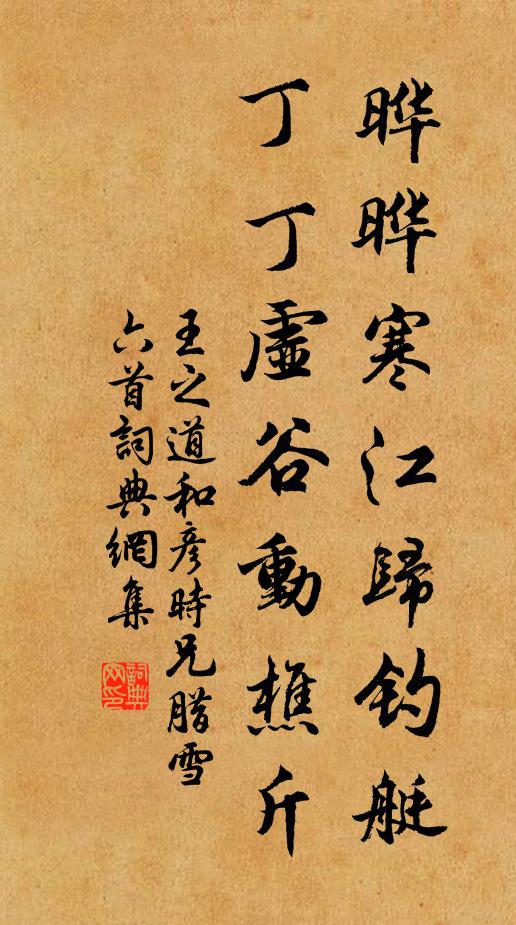 晔晔寒江歸钓艇
丁丁虛谷動樵斤
王之道和彦時兄腊雪
六首詞典網集
詞典
网印